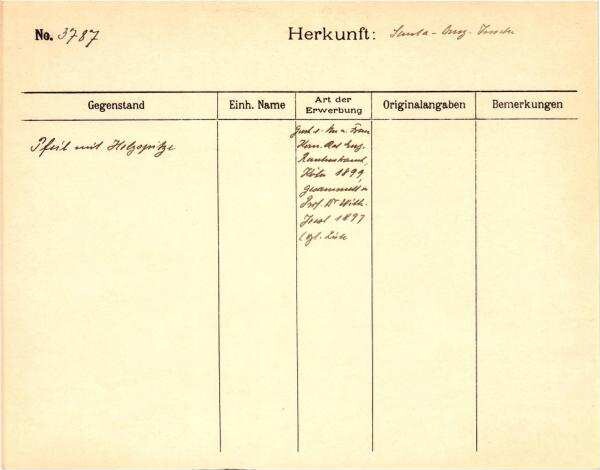 No. 3787
Herkunft: Santa-Cruz-Inseln
Gegenstand
Einh. Name
Art der Erwerbung
Originalangaben
Bemerkungen
Pfeil mit Holzspitze
Gesch. v. Hn. u. Frau
Kom. Rat Eug.
Rautenstrauch,
Köln 1899,
gesammelt v.
Prof. Dr Wilh.
Joest 1897
(vgl. Liste